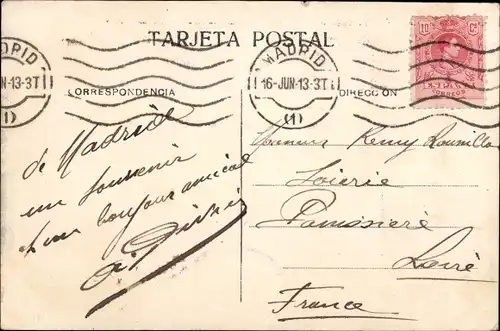 TARJETA POSTAL
MADRID
16-JUN-13-3T
(1)
MADRID
16-JUN-13-3T
(1)
10 Cs
CORREOS
CORRESPONDENCIA
DIRECCION
de Madrid
un souvenir
et un bonjour amical
Monsieur Remy
Soierie
Panissière
Loire
France